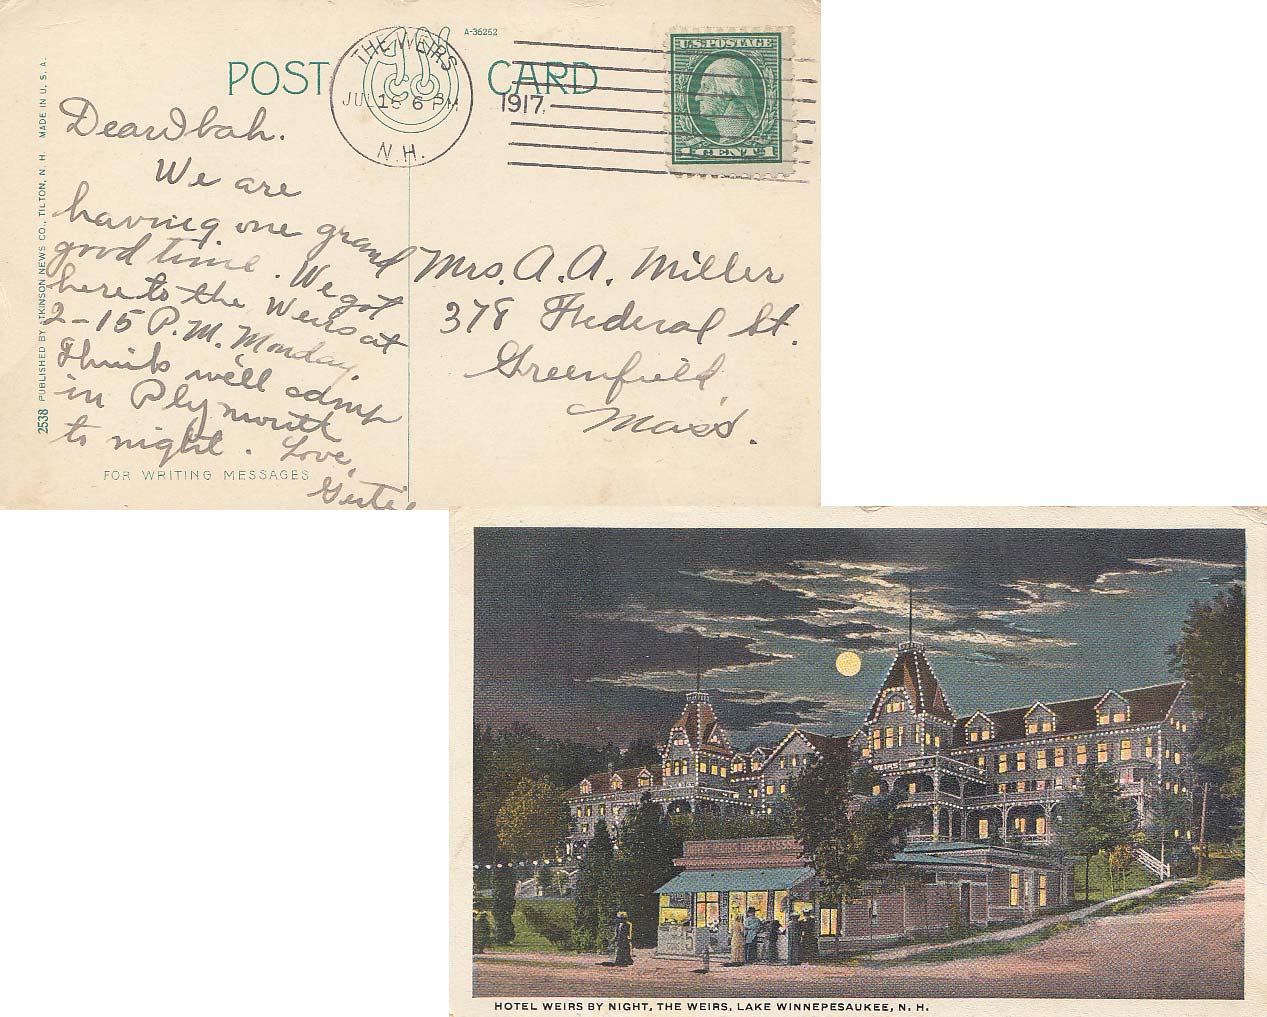 A-36262
POST CARD
THE WEIRS
JUL 16 6 PM
1917
N.H.
U.S. POSTAGE
1 CENT 1
2538 PUBLISHED BY ATKINSON NEWS CO., TILTON, N. H. MADE IN U. S. A.
Dear Ibah.
We are
having one grand
good time. We got
here to the Weirs at
2-15 P.M. Monday.
Think we'll camp
in Plymouth
to night. Love,
Gertie
FOR WRITING MESSAGES
Mrs. A. A. Miller
378 Federal St.
Greenfield,
Mass.
WEIRS
HOTEL WEIRS BY NIGHT, THE WEIRS, LAKE WINNEPESAUKEE, N. H.